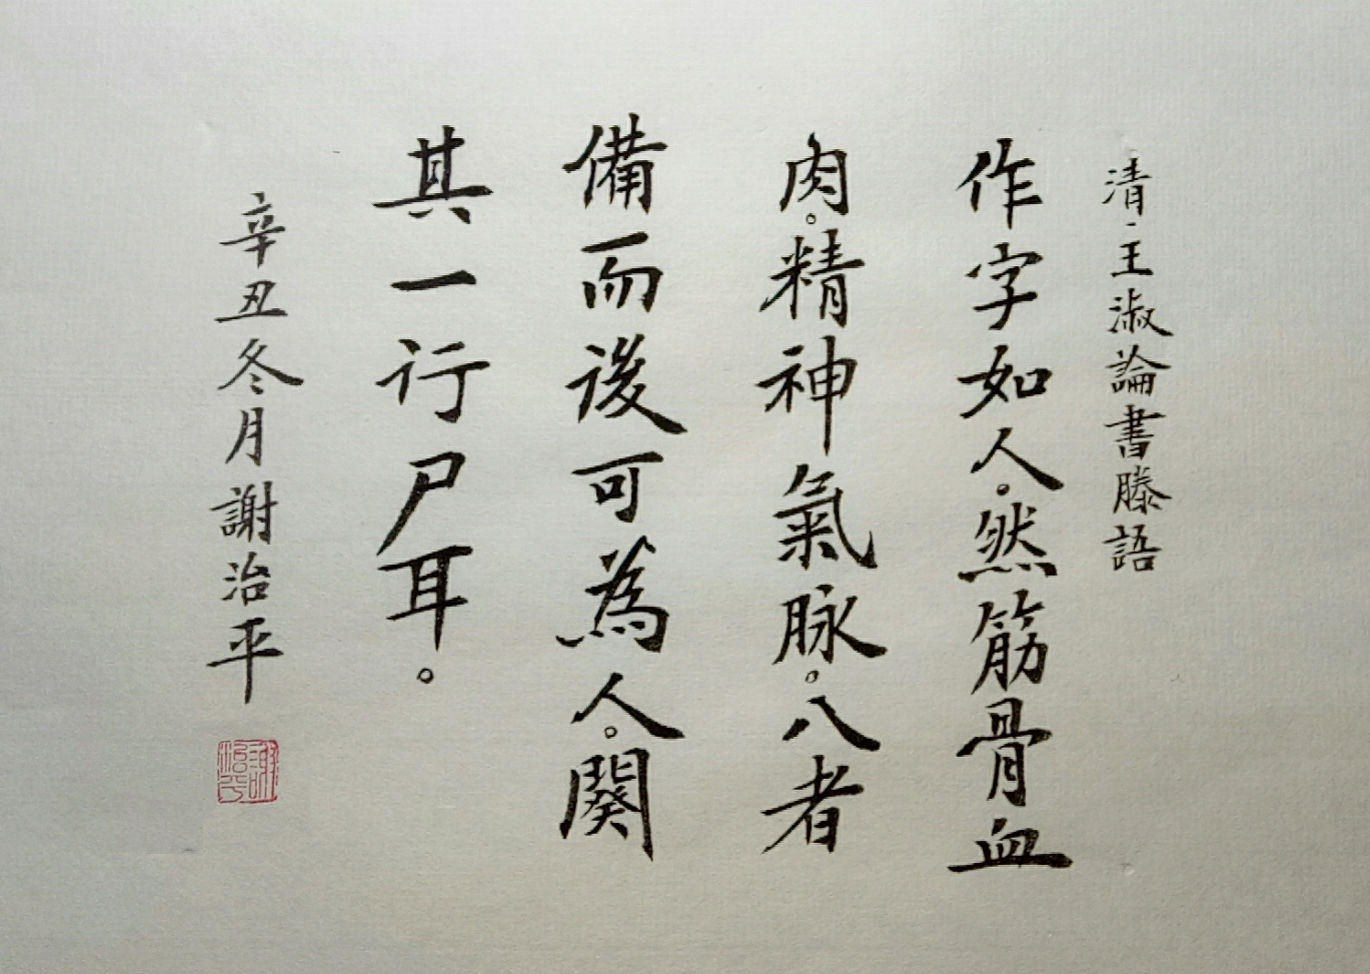 清·王淑論書賸語
作字如人。然筋骨血
肉。精神氣脉。八者
備而後可為人。闋
其一行尸耳。
辛丑冬月謝治平
謝治平